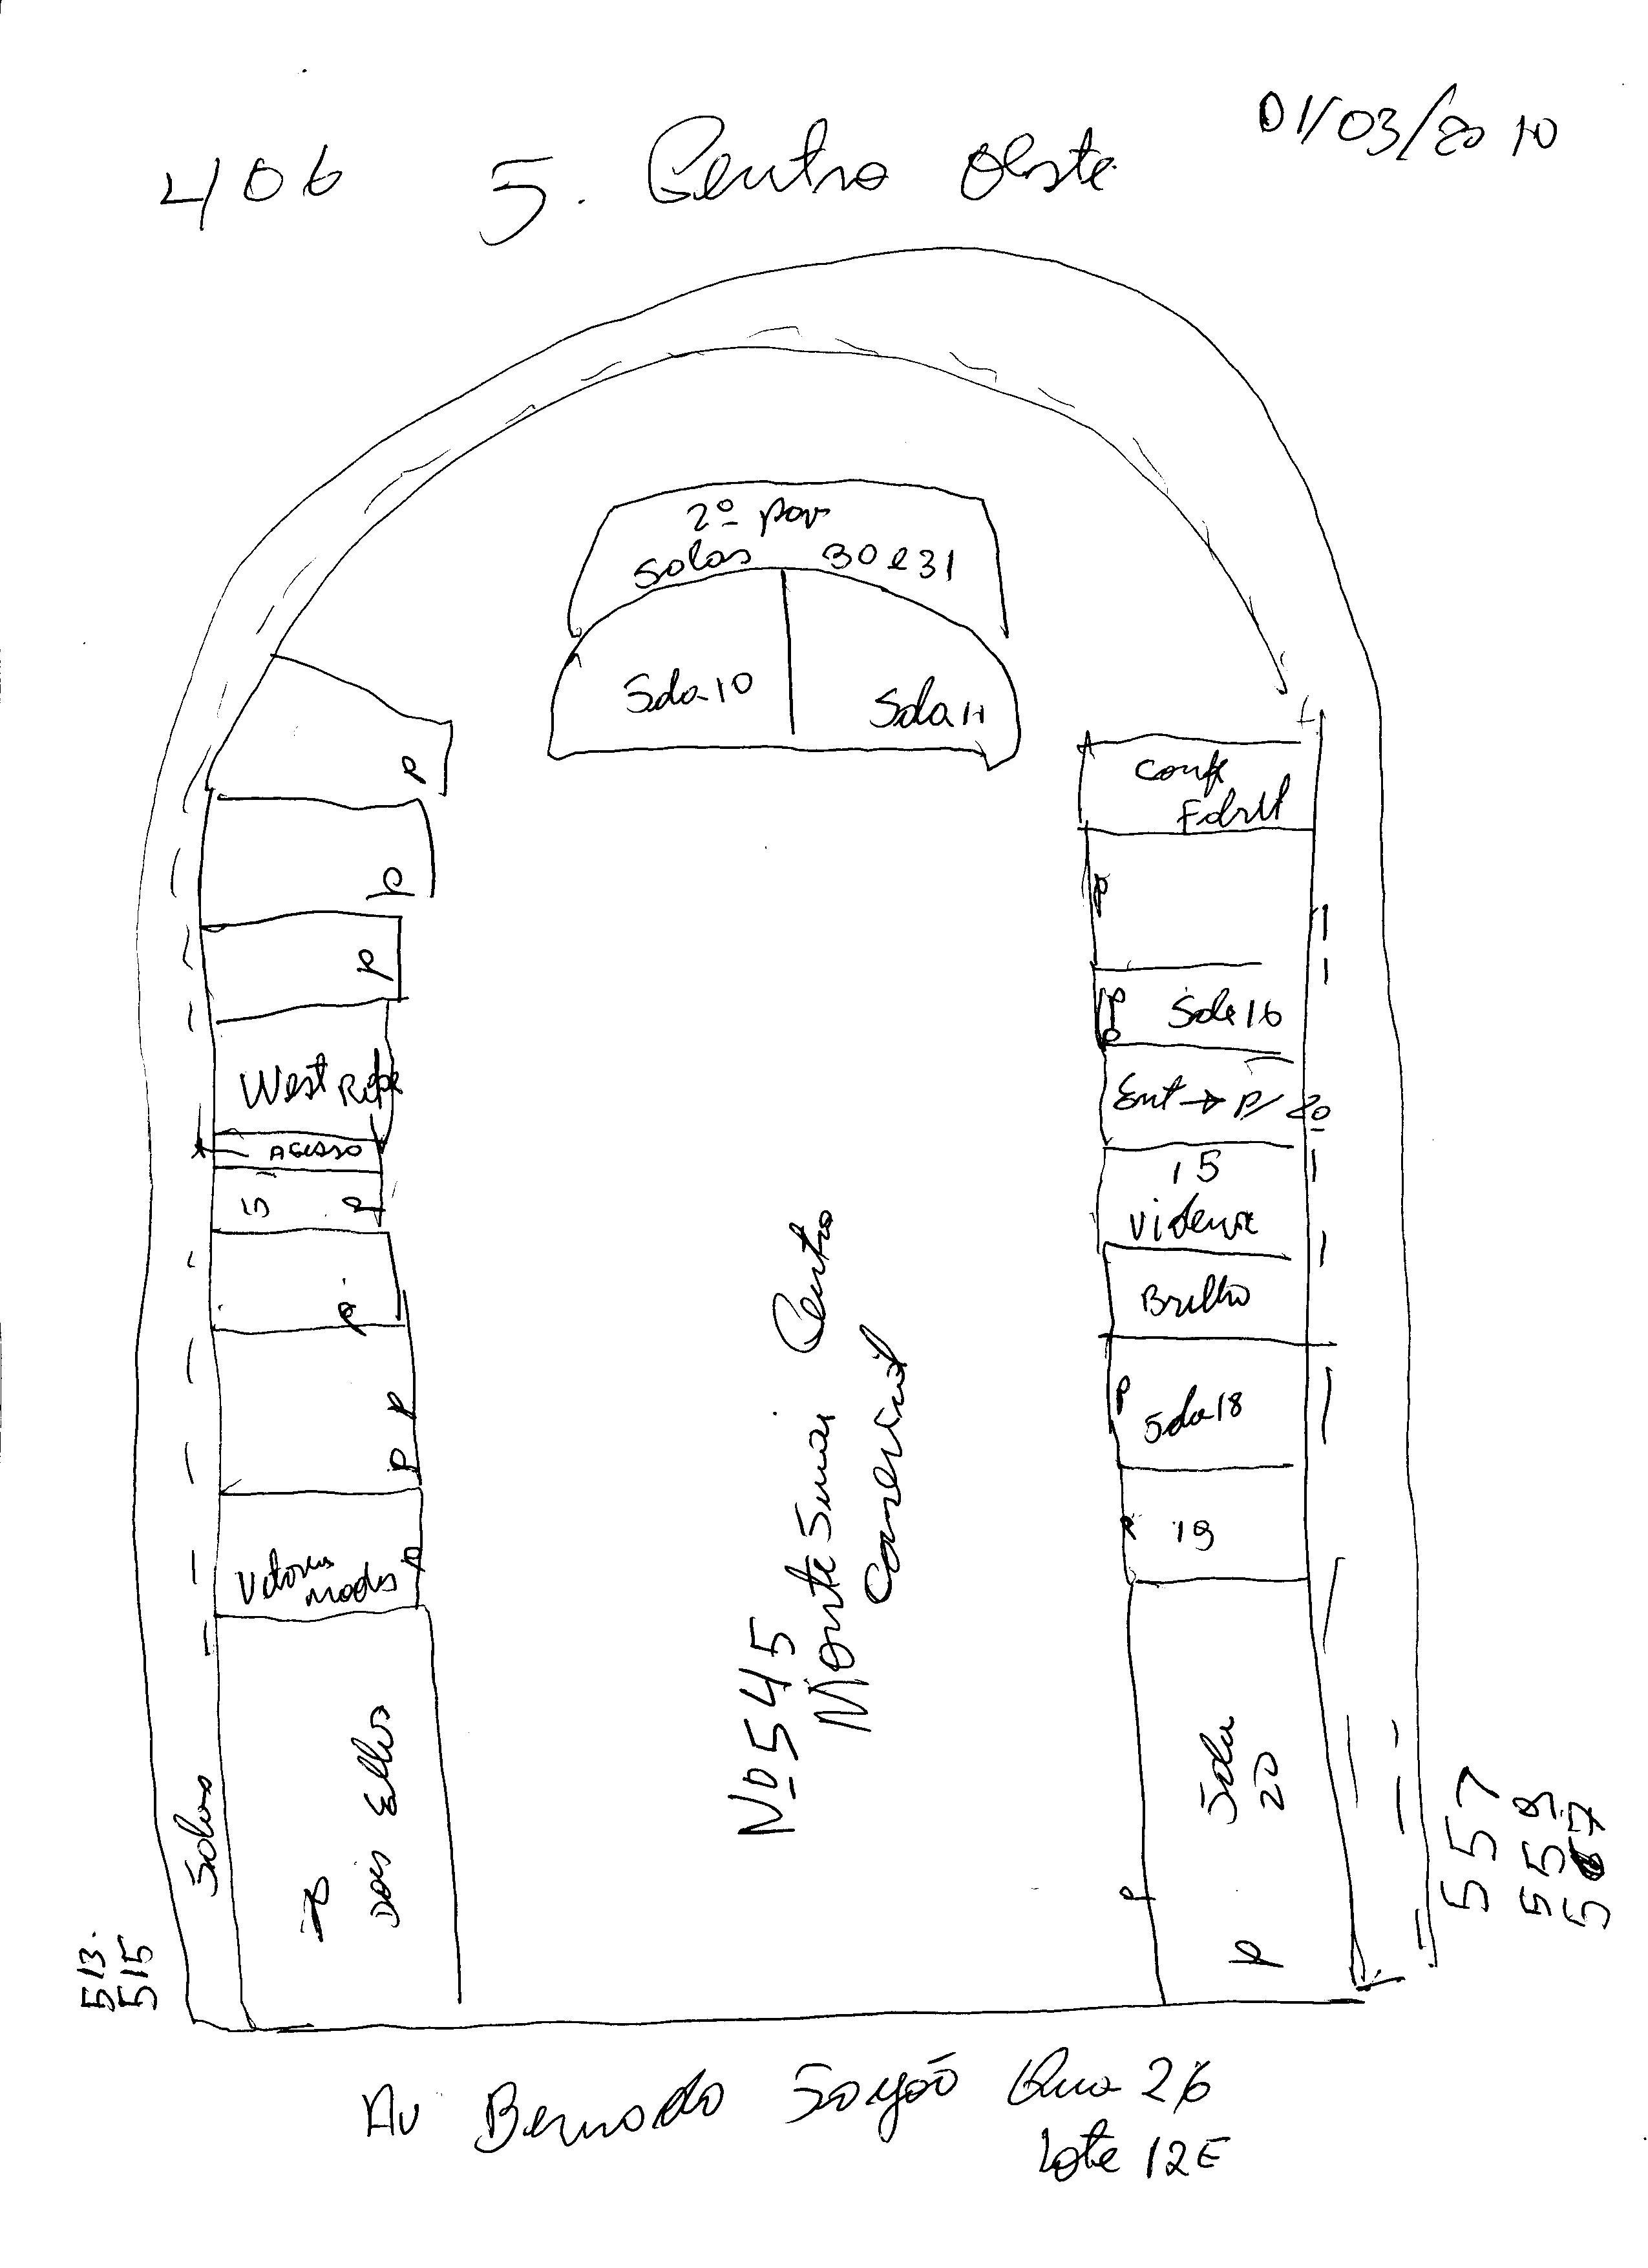 01/03/2010
406 5. Centro Oeste
2º pav
Salas 30 e 31
Sala 10
Sala 11
P
P
P
West Ripe
Acesso
15 P
P
P
P
Modas P
Salas
Dois Elhos
513.
515
Nº 545
Monte Sinai Centro
Comercial
P
P
P Sala 16
Ent → P/ 20
15
Brilho
P Sala 18
P 19
Sala
20
P
P
557
559
567
Av Bernardo Sayão Qua 26
Lote 12E